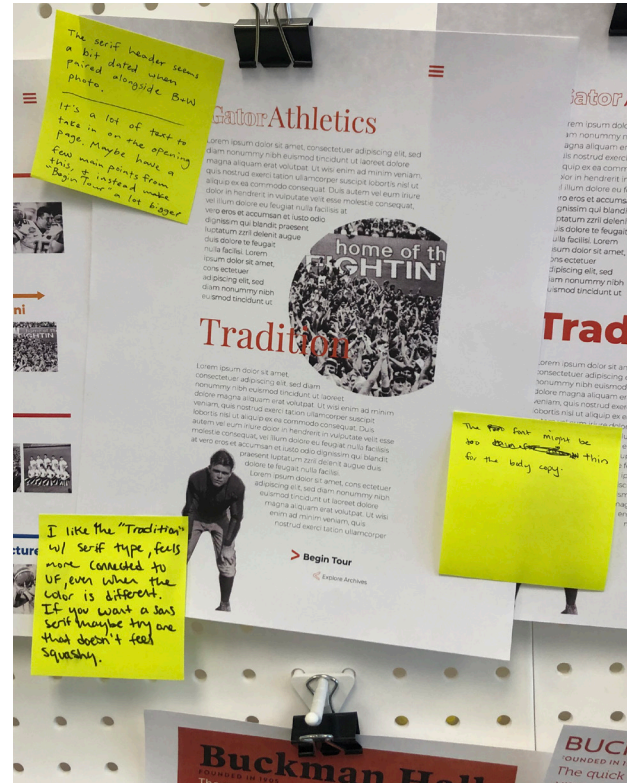 The serif header seems
a bit dated when
paired alongside B+W
photo.
It's a lot of text to
take in on the opening
page. Maybe have a
few main points from
this, & instead make
"Begin Tour" a lot bigger
GatorAthletics
Lorem ipsum dolor sit amet, consectetuer adipiscing elit, sed
diam nonummy nibh euismod tincidunt ut laoreet dolore
magna aliquam erat volutpat. Ut wisi enim ad minim veniam,
quis nostrud exerci tation ullamcorper suscipit lobortis nisl ut
aliquip ex ea commodo consequat. Duis autem vel eum iriure
dolor in hendrerit in vulputate velit esse molestie consequat,
vel illum dolore eu feugiat nulla facilisis at
vero eros et accumsan et iusto odio
dignissim qui blandit praesent
luptatum zzril delenit augue
duis dolore te feugait
nulla facilisi. Lorem
ipsum dolor sit amet,
cons ectetuer
adipiscing elit, sed
diam nonummy nibh
euismod tincidunt ut
home of th
FIGHTIN'
Tradition
Lorem ipsum dolor sit amet,
consectetuer adipiscing elit, sed diam
nonummy nibh euismod tincidunt ut laoreet
dolore magna aliquam erat volutpat. Ut wisi enim ad minim
veniam, quis nostrud exerci tation ullamcorper suscipit
lobortis nisl ut aliquip ex ea commodo consequat. Duis
autem vel eum iriure dolor in hendrerit in vulputate velit esse
molestie consequat, vel illum dolore eu feugiat nulla facilisis
at vero eros et accumsan et iusto odio dignissim qui blandit
praesent luptatum zzril delenit augue duis
dolore te feugait nulla facilisi.
Lorem ipsum dolor sit amet, cons ectetuer
adipiscing elit, sed diam nonummy nibh
euismod tincidunt ut laoreet dolore
magna aliquam erat volutpat. Ut wisi
enim ad minim veniam, quis
nostrud exerci tation ullamcorper
> Begin Tour
< Explore Archives
Trad
The font might be
too thin
for the body copy.
I like the "Tradition"
w/ serif type, feels
more connected to
UF, even when the
color is different.
If you want a sans
serif maybe try one
that doesn't feel
squashy.
FIGHTIN
ni
cture
Buckman Hall
FOUNDED IN 1905
BUC
FOUNDED IN 1
The quick